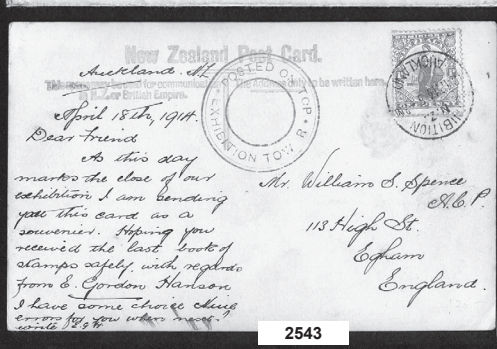 New Zealand Post Card.
Auckland. NZ
or British Empire.
The Address only to be written here.
POSTED ON TOP
* EXHIBITION TOWER *
April 18th, 1914.
Dear Friend
As this day
marks the close of our
exhibition I am sending
you this card as a
souvenier. Hoping you
received the last book of
stamps safely. with regards
from E. Gordon Hanson
I have some choice
errors for you when next
write
Mr. William S. Spence
A.C.P.
113 High St.
Egham
England.
2543